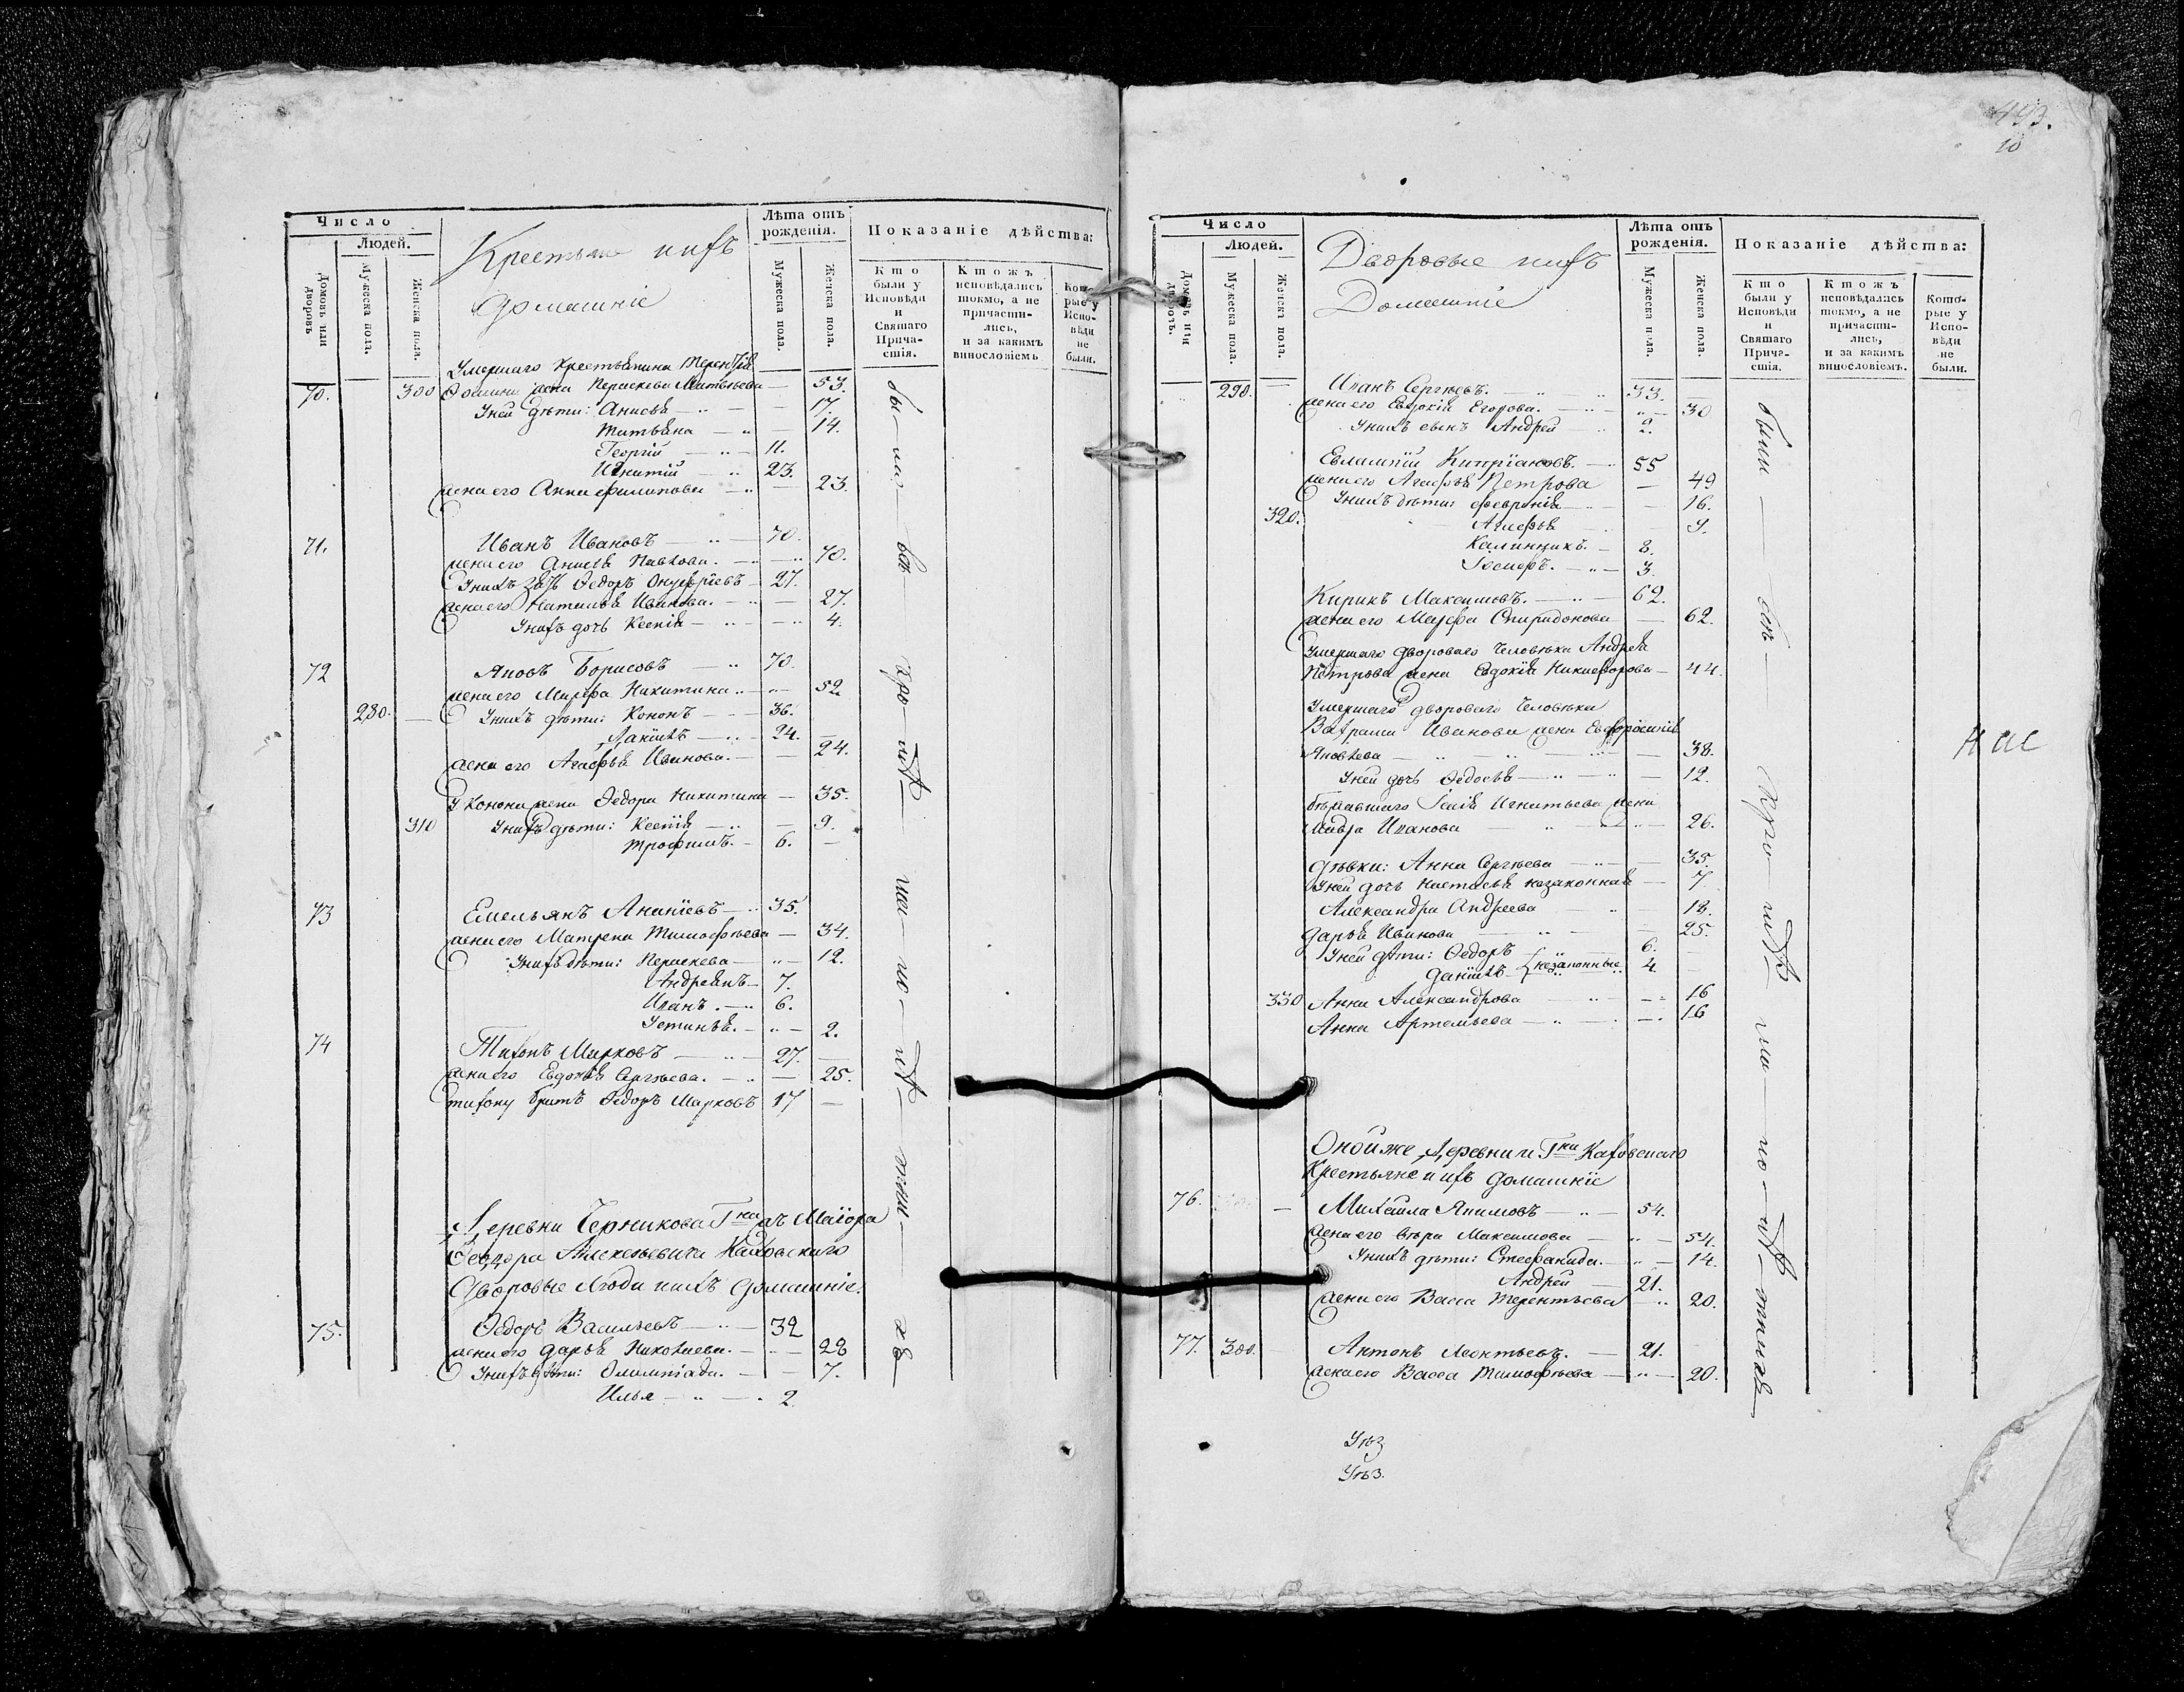 Число
Людей.
Домовъ или дворовъ
Мужеска пола.
Женска пола.
Крестьяне и ихъ
домашніе
Лѣта отъ рожденія.
Мужеска пола.
Женска пола.
Показаніе дѣйства:
Кто были у Исповѣди и Святаго Причастія.
Ктожъ исповѣдались токмо, а не причастились, и за какимъ винословіемъ
Которые у Исповѣди не были.
Умершаго Крестьянина Терентія
70. 300 жена Параскева Матвѣева — 53.
У ней дѣти: Анисья — 17.
Татьяна — 14.
Георгій — 11.
Игнатій — 23.
жена его Анна Филипова — 23.
71. Иванъ Ивановъ — 70.
жена его Анисья Павлова. — 70.
У нихъ зять Ѳедоръ Онуфріевъ — 27.
жена его Наталья Иванова. — 27.
У нихъ дочь Ксенія — 4.
72 Яковъ Борисовъ — 70.
жена его Марфа Никитина — 52
280. У нихъ дѣти: Кононъ — 36.
Даніилъ — 24.
жена его Агафья Иванова. — 24.
У Конона жена Ѳедора Никитина — 35.
310 У нихъ дѣти: Ксенія — 9.
Трофимъ. — 6. —
73 Емельянъ Ананіевъ — 35.
жена его Матрена Тимофѣева — 34.
У нихъ дѣти: Параскева — 12.
Андреянъ — 7.
Иванъ. — 6.
Устинья. — 2.
74 Тихонъ Марковъ — 27. —
жена его Евдокія Сергѣева. — 25.
Тихону братъ Ѳедоръ Марковъ 17 —
Деревни Черникова Гна Маіора
Ѳеодора Алексѣевича Каховскаго
Дворовые Люди и ихъ домашніе.
75. Ѳедоръ Васильевъ — 32
жена его Дарья Николаева. — 28
У нихъ дѣти: Олимпіада. — 7.
Илья — 2.
493.
10
Число
Людей.
Домовъ или дворовъ.
Мужеска пола.
Женска пола.
Дворовые и ихъ
Домашніе
Лѣта отъ рожденія.
Мужеска пола.
Женска пола.
Показаніе дѣйства:
Кто были у Исповѣди и Святаго Причастія.
Ктожъ исповѣдались токмо, а не причастились, и за какимъ винословіемъ.
Которые у Исповѣди не были.
290. — Иванъ Сергѣевъ. — 33. —
жена его Евдокія Егорова. — 30
У нихъ сынъ Андрей — 2.
Евлампій Кипріановъ. — 55
жена его Агафья Петрова — 49
У нихъ дѣти: Февронія — 16.
320. Агафья — 9.
Калинникъ. — 8.
Іосифъ. — 3.
Кирикъ Максимовъ. — 62.
жена его Марфа Спиридонова — 62.
Умершаго двороваго человѣка Андрея
Петрова жена Евдокія Никифорова — 44.
Умершаго двороваго человѣка
Ивана жена Евфросинія
Яковлева — 38.
У ней дочь Ѳедосья — 12.
бѣжавшаго Игнатьева жена
Мавра Иванова — 26.
дѣвки: Анна Сергѣева — 35.
У ней дочь Настасья незаконная — 7.
Александра Андреева — 18.
Дарья Иванова — 25.
У ней дѣти: Ѳедоръ — 6. —
Даніилъ { незаконные 4. —
330 Анна Александрова — 16
Анна Артемьева — 16
Оной же Деревни Гна Каховскаго
Крестьяне и ихъ домашніе
76. — Михайла Якимовъ — 54.
жена его Вѣра Максимова — 54.
У нихъ дѣти: Стефанида. — 14.
Андрей — 21.
жена его Васса Терентьева — 20.
77. 300. Антонъ Леонтьевъ. — 21.
жена его Васса Тимофѣева — 20.
Нас
Уѣз
Уѣз.